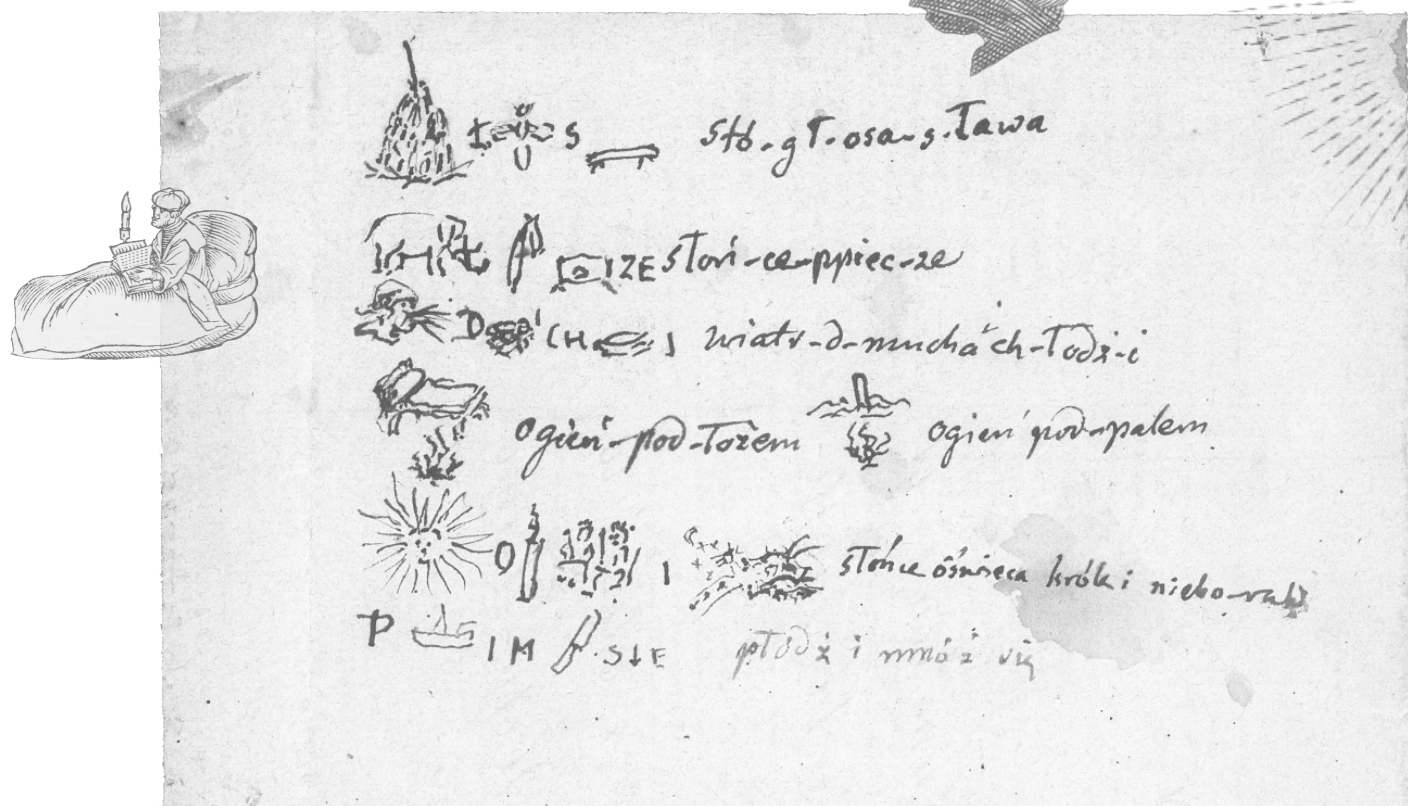 Ł S stó-gł-osa-s-ława
Ł IZE słoń-ce-ppiec-ze
D CH I wiatr-d-muchá ch-łodź-i
ogień-pod-łożem ogień pod-palem
O I słońce oświeca królik i niebo-rak
P I M SIE płódź i mnóż się